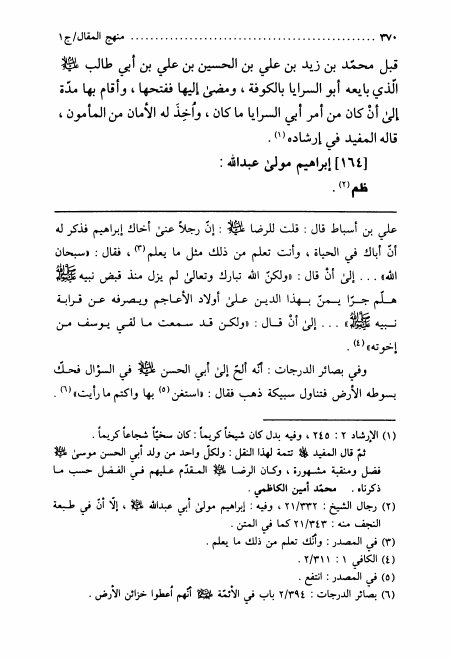 ٣٧٠ ........................................ منهج المقال/ج١
قبل محمّد بن زيد بن علي بن الحسين بن علي بن أبي طالب عليه السلام
الّذي بايعه أبو السرايا بالكوفة ، ومضىٰ إليها ففتحها ، وأقام بها مدّة
إلىٰ أنْ كان من أمر أبي السرايا ما كان ، وأُخِذَ له الأمان من المأمون ،
قاله المفيد في إرشاده(١) .
[١٦٤] إبراهيم مولىٰ عبدالله :
ظم(٢) .
علي بن أسباط قال : قلت للرضا عليه السلام : إنّ رجلاً عنىٰ أخاك إبراهيم فذكر له
أنّ أباك في الحياة ، وأنت تعلم من ذلك مثل ما يعلم(٣) ، فقال : «سبحان
الله» ... إلىٰ أنْ قال : «ولكنّ الله تبارك وتعالىٰ لم يزل منذ قبض نبيه صلى الله عليه وآله
هلّم جرّا يمنّ بهذا الدين علىٰ أولاد الأعاجم ويصرفه عن قرابة
نبيه صلى الله عليه وآله» ... إلىٰ أنْ قال : «ولكن قد سمعت ما لقي يوسف من
إخوته»(٤) .
وفي بصائر الدرجات : أنّه ألحّ إلىٰ أبي الحسن عليه السلام في السؤال فحكّ
بسوطه الأرض فتناول سبيكة ذهب فقال : «استغن(٥) بها واكتم ما رأيت»(٦) .
(١) الإرشاد ٢ : ٢٤٥ ، وفيه بدل كان شيخاً كريماً : كان سخيّاً شجاعاً كريماً .
ثمّ قال المفيد تتمة لهذا النقل : ولكلّ واحد من ولد أبي الحسن موسىٰ عليه السلام
فضل ومنقبة مشهورة ، وكان الرضا عليه السلام المقدّم عليهم في الفضل حسب ما
ذكرناه . محمّد أمين الكاظمي .
(٢) رجال الشيخ : ٢١/٣٣٢ ، وفيه : إبراهيم مولىٰ أبي عبدالله عليه السلام ، إلّا أنّ في طبعة
النجف منه : ٢١/٣٤٣ كما في المتن .
(٣) في المصدر : وأنّك تعلم من ذلك ما يعلم .
(٤) الكافي ١ : ٢/٣١١ .
(٥) في المصدر : انتفع .
(٦) بصائر الدرجات : ٢/٣٩٤ باب في الأئمّة عليهم السلام أنّهم أعطوا خزائن الأرض .